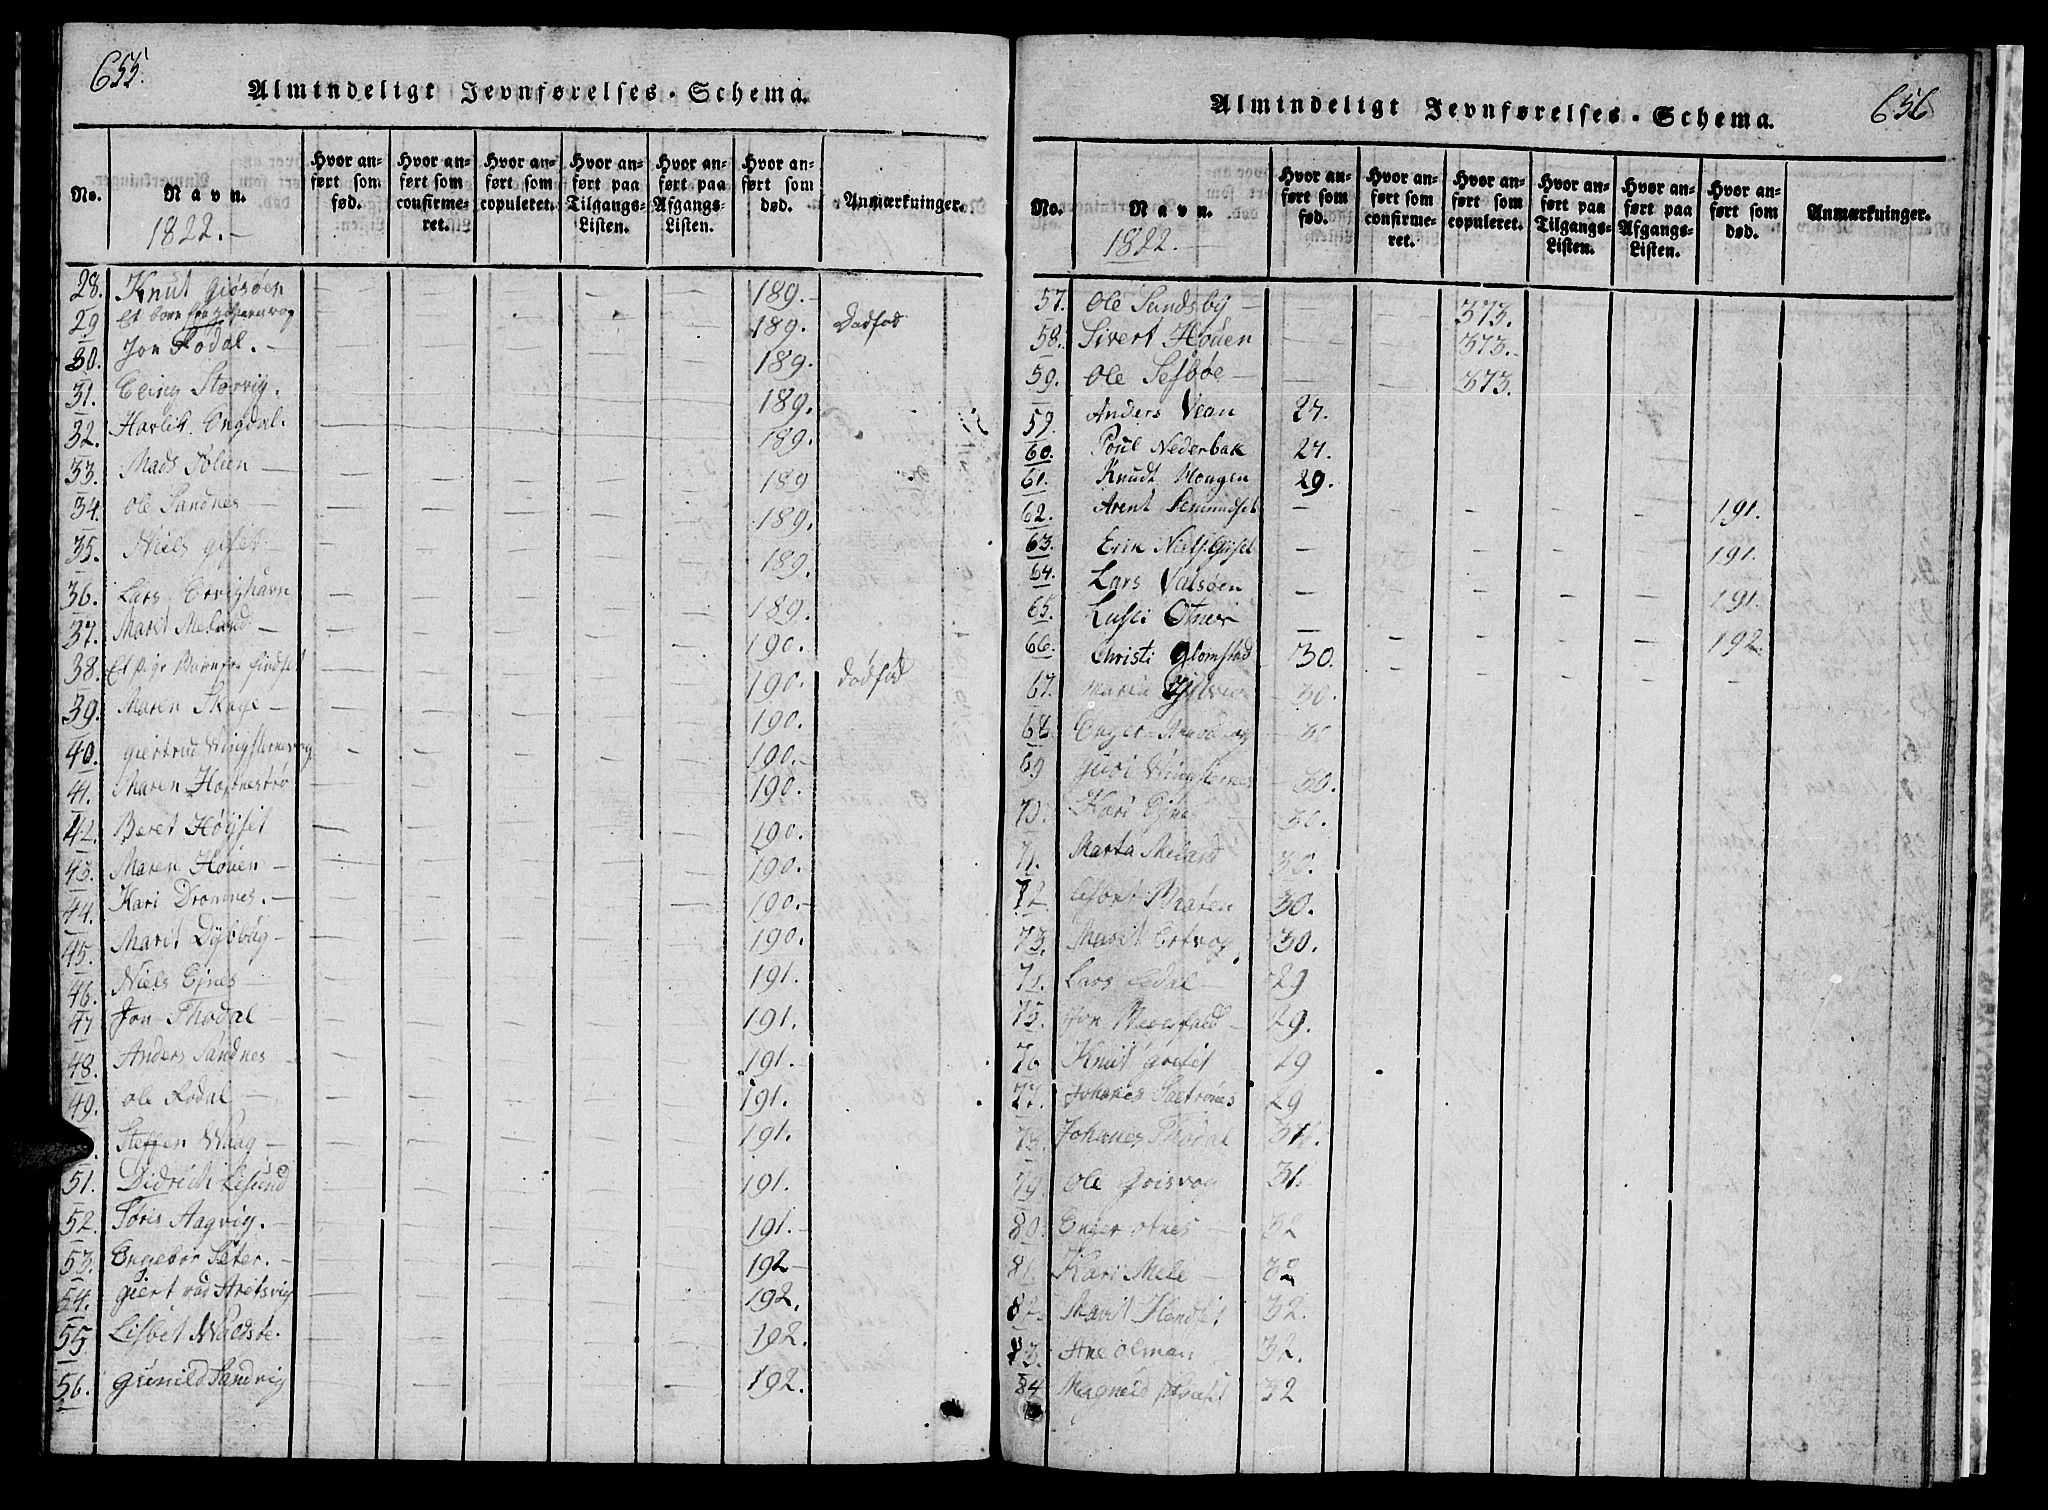 655.
Almindeligt Jevnførelses-Schema.
No. Navn. Hvor anført som fød. Hvor anført som confirmeret. Hvor anført som copuleret. Hvor anført paa Tilgangs-Listen. Hvor anført paa Afgangs-Listen. Hvor anført som død. Anmærkninger.
1822.
28. Knut Giøsøen 189.
29 Et barn fra 189. Dødfød
30. Jon Rodal. 189.
31. Eling Storvig. 189.
32. Harlik Engdal. 189.
33. Mads Solien 189
34. Ole Sandnes 189.
35. Niels Giset 189.
36. Lars Ervighavn 189.
37. Marit Meland 190.
38. Et Pige Barn fra Sindset 190. Dødfød
39. Maren Skage 190.
40. Giertrud 190.
41. Maren 190.
42. Beret Høyset 190.
43. Maren Høuen 190.
44. Kari Dromnes. 190.
45. Marit Dyrbug 190.
46. Niels Ejnes 191.
47 Jon Thodal 191.
48. Anders Sandnes 191.
49. Ole Rodal 191.
Steffen Waag 191.
51. Didrich Lesund 191.
52. Siris Aagvig. 191.
53. Engebor Seter. 192
54. Giertrud Aretsvig 192.
55 Lisbet 192.
56. Gunild Sandvig 192.
656
Almindeligt Jevnførelses-Schema.
No. Navn. Hvor anført som fød. Hvor anført som confirmeret. Hvor anført som copuleret. Hvor anført paa Tilgangs-Listen. Hvor anført paa Afgangs-Listen. Hvor anført som død. Anmærkninger.
1822.
57. Ole Sundsby 373.
58. Sivert Høuen 373.
59. Ole Sesbøe 373.
59. Anders Vean 27.
60. Poul Nederbak 27.
61. Knudt Hougen 29.
62. Arent Semundset 191.
63. Erik Niels. Giset 191.
64. Lars Valsøen 191.
65. Lussi Otnes 192.
66. Christi Glomstad 30.
67. Maria 30.
68. Enger 30
69 Guri 30.
70. Kari Ejnes 30.
71. Marta Meland 30.
72 Braten 30.
73. Marit Ertvog 30.
74. Lars 29
75. Jon 29.
76 Knut Greset 29
77. Johanes Settrønes 29
78. Johanes Thodal 31.
79. Ole Grisvog 31.
80. Enger Otnes 32
81. Kari Mele 32
82. Marit Hendset 32.
83. Ane Olman 32.
84 Magnild 32